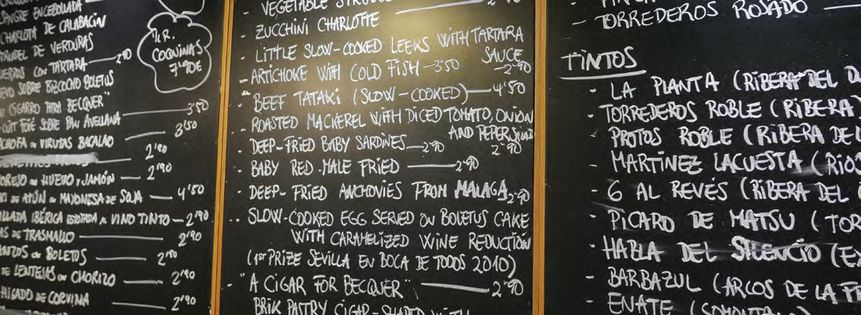 SANGRE ENCEBOLLADA
CHARLOTA DE CALABACIN
DE VERDURAS
CON TARTARA — 2'90
SOBRE BIZCOCHO BOLETUS
CIGARRO PARA BECQUER" — 3'50
FOIÉ SOBRE PAN AVELLANA — 3'50
VIRUTAS BACALAO
2'90
HUEVO Y JAMÓN — 2'90
DE ATÚN A MAYONESA DE SOJA — 4'50
IBÉRICA VINO TINTO — 2'90
DE TRASMALLO — 2'90
BOLETOS — 2'90
DE LENTEJAS CHORIZO — 2'90
DE CORVINA — 2'90
COQUINAS
7'90€
- VEGETABLE
- ZUCCHINI CHARLOTTE
- LITTLE SLOW-COOKED LEEKS WITH TARTARA
SAUCE 2'90
- ARTICHOKE WITH COLD FISH - 3'50
- BEEF TATAKI (SLOW-COOKED) — 4'50
- ROASTED MACKEREL WITH DICED TOMATO, ONION
AND PEPER 2'90
- DEEP-FRIED BABY SARDINES — 2'90
- BABY RED MALE FRIED — 2'90
- DEEP-FRIED ANCHOVIES FROM MALAGA 2'90
- SLOW-COOKED EGG SERVED ON BOLETUS CAKE
WITH CARAMELIZED WINE REDUCTION
(1st PRIZE SEVILLA EN BOCA DE TODOS 2010)
- "A CIGAR FOR BECQUER" — 2'90
BRIK PASTRY CIGAR-SHAPED WITH
- TORREDEROS ROSADO
TINTOS
- LA PLANTA (RIBERA DEL
- TORREDEROS ROBLE (RIBERA
- PROTOS ROBLE (RIBERA DE
- MARTINEZ LACUESTA (
- 6 AL REVÉS (RIBERA DEL
- PICARO DE MATSU (
- HABLA DEL SILENCIO (
- BARBAZUL (ARCOS DE LA
- ENATE (SOMONTANO)